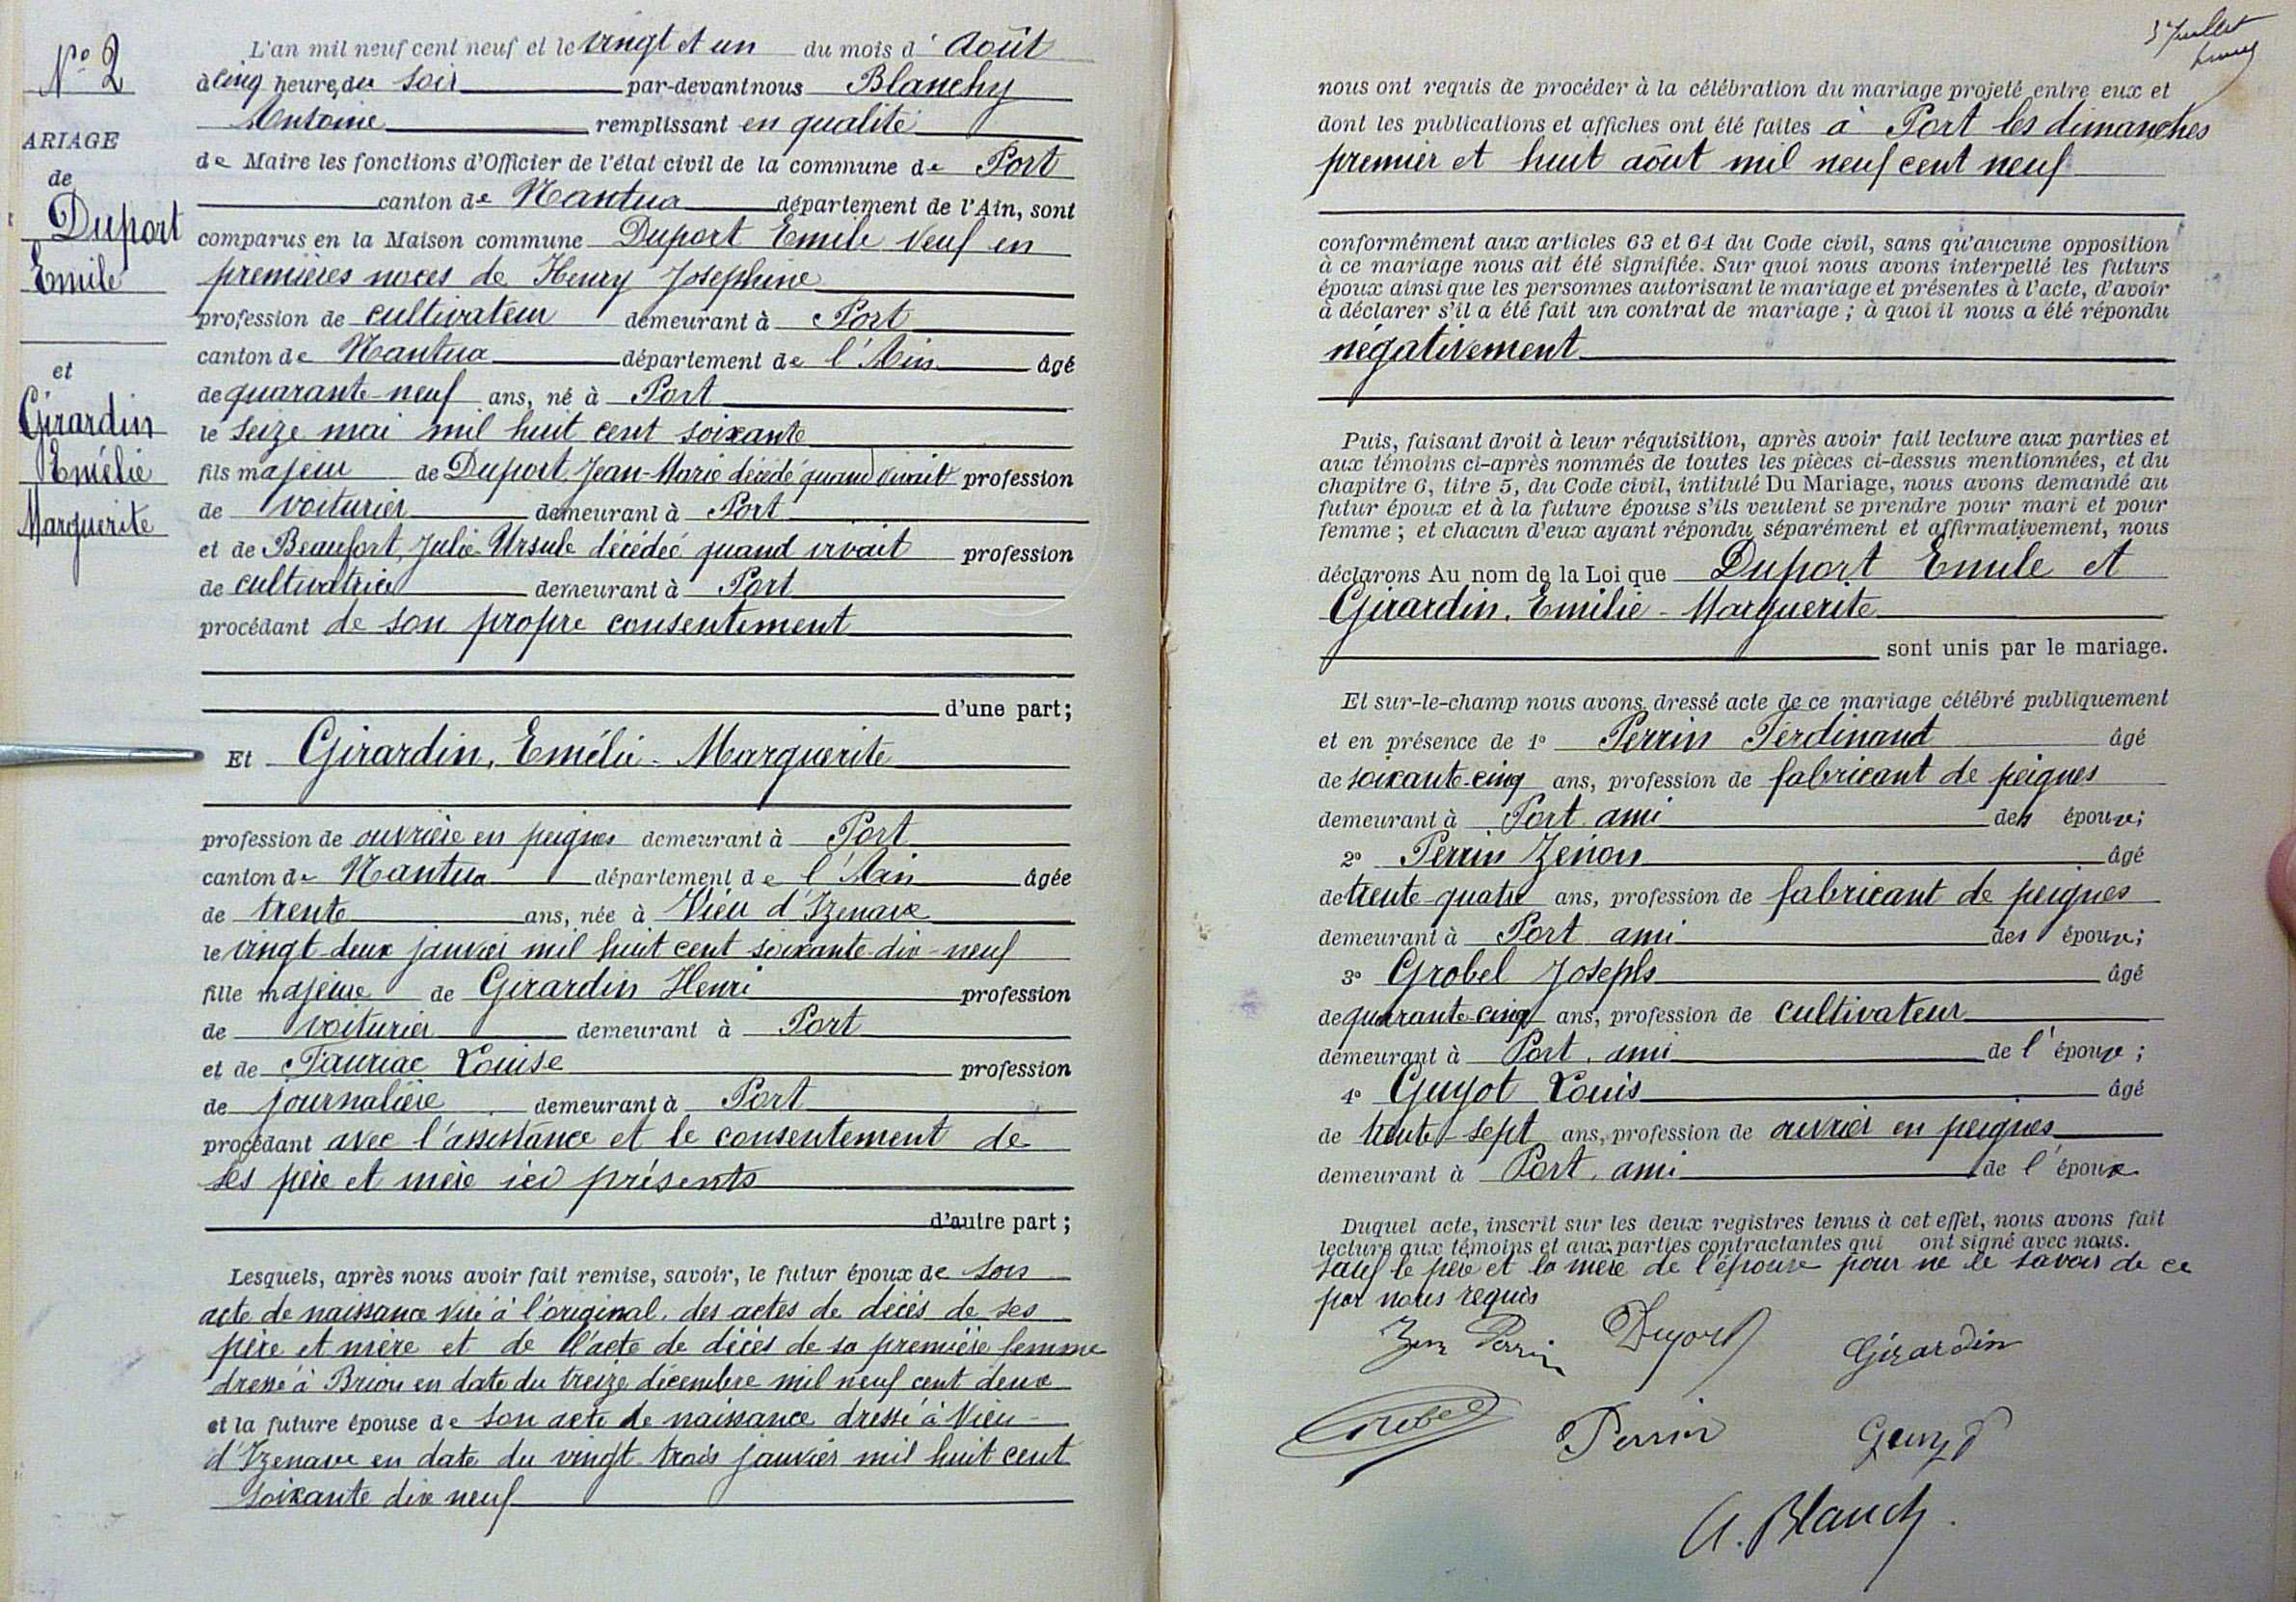 N° 2
ARIAGE
de
Duport
Emile
et
Girardin
Emélie
Marguerite
L'an mil neuf cent neuf et le vingt et un du mois d' Août
à cinq heures du soir par-devant nous Blanchy
Antoine remplissant en qualité
de Maire les fonctions d'Officier de l'état civil de la commune de Port
canton de Nantua département de l'Ain, sont
comparus en la Maison commune Duport Emile veuf en
premières noces de Henry Joséphine
profession de cultivateur demeurant à Port
canton de Nantua département de l'Ain âgé
de quarante-neuf ans, né à Port
le seize mai mil huit cent soixante
fils majeur de Duport, Jean-Marie décédé quand vivait profession
de voiturier demeurant à Port
et de Beaufort, Julie-Ursule décédée quand vivait profession
de cultivatrice demeurant à Port
procédant de son propre consentement
d'une part;
Et Girardin, Emélie-Marguerite
profession de ouvrière en peignes demeurant à Port
canton de Nantua département de l'Ain âgée
de trente ans, née à Vieu d'Izenave
le vingt-deux janvier mil huit cent soixante-dix-neuf
fille majeure de Girardin Henri profession
de voiturier demeurant à Port
et de Tauriac Louise profession
de journalière demeurant à Port
procédant avec l'assistance et le consentement de
ses père et mère ici présents
d'autre part;
Lesquels, après nous avoir fait remise, savoir, le futur époux de son
acte de naissance vu à l'original, des actes de décès de ses
père et mère et de l'acte de décès de sa première femme
dressé à Brion en date du treize décembre mil neuf cent deux
et la future épouse de son acte de naissance dressé à Vieu-
d'Izenave en date du vingt-trois janvier mil huit cent
soixante dix neuf
3 Juillet
nous ont requis de procéder à la célébration du mariage projeté entre eux et
dont les publications et affiches ont été faites à Port les dimanches
premier et huit août mil neuf cent neuf
conformément aux articles 63 et 64 du Code civil, sans qu'aucune opposition
à ce mariage nous ait été signifiée. Sur quoi nous avons interpellé les futurs
époux ainsi que les personnes autorisant le mariage et présentes à l'acte, d'avoir
à déclarer s'il a été fait un contrat de mariage; à quoi il nous a été répondu
négativement
Puis, faisant droit à leur réquisition, après avoir fait lecture aux parties et
aux témoins ci-après nommés de toutes les pièces ci-dessus mentionnées, et du
chapitre 6, titre 5, du Code civil, intitulé Du Mariage, nous avons demandé au
futur époux et à la future épouse s'ils veulent se prendre pour mari et pour
femme; et chacun d'eux ayant répondu séparément et affirmativement, nous
déclarons Au nom de la Loi que Duport Emile et
Girardin, Emilie-Marguerite
sont unis par le mariage.
Et sur-le-champ nous avons dressé acte de ce mariage célébré publiquement
et en présence de 1° Perrin Ferdinand âgé
de soixante-cinq ans, profession de fabricant de peignes
demeurant à Port ami des époux;
2° Perrin Zénon âgé
de trente-quatre ans, profession de fabricant de peignes
demeurant à Port ami des époux;
3° Grobel Joseph âgé
de quarante-cinq ans, profession de cultivateur
demeurant à Port, ami de l'époux;
4° Guyot Louis âgé
de trente-sept ans, profession de ouvrier en peignes
demeurant à Port, ami de l'époux
Duquel acte, inscrit sur les deux registres tenus à cet effet, nous avons fait
lecture aux témoins et aux parties contractantes qui ont signé avec nous.
sauf le père et la mère de l'épouse pour ne le savoir de ce
par nous requis
Zen Perrin Duport Girardin
Grobel Perrin Guyot
A. Blanchy